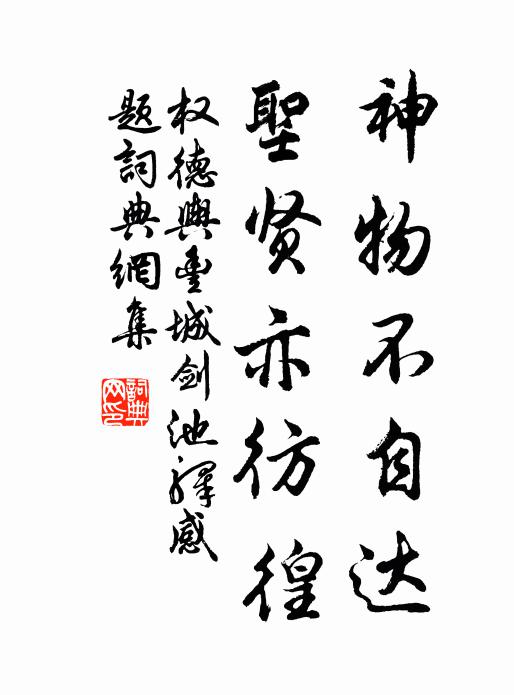 神物不自达
聖贤亦彷徨
权德輿豊城剑池驛感
题詞典網集
詞典网印